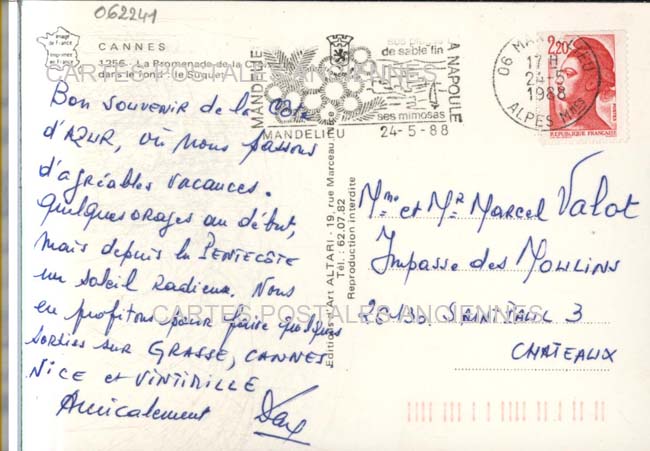 062241
Image de France
Imprimé en France
CANNES
1256 - La Promenade de la
dans le fond : le Suquet
CARTES POSTALES ANCIENNES
MANDELIEU
LA NAPOULE
de sable fin
ses mimosas
MANDELIEU 24-5-88
06 MANDELIEU
17 H
24-5
1988
ALPES Mmes
2,20
REPUBLIQUE FRANÇAISE
Bon souvenir de la Côte
d'AZUR, où nous passons
d'agréables vacances.
Quelques orages au début,
mais depuis la PENTECÔTE
un soleil radieux. Nous
en profitons pour faire quelques
sorties sur GRASSE, CANNES
NICE et VINTIMILLE
Amicalement
Editions d'Art ALTARI - 19, rue Marceau,
Tél. : 62.07.82
Reproduction interdite
Mme et Mr Marcel Valot
Impasse des MOULINS
SAINT PAUL 3
CHATEAUX
CARTES POSTALES ANCIENNES